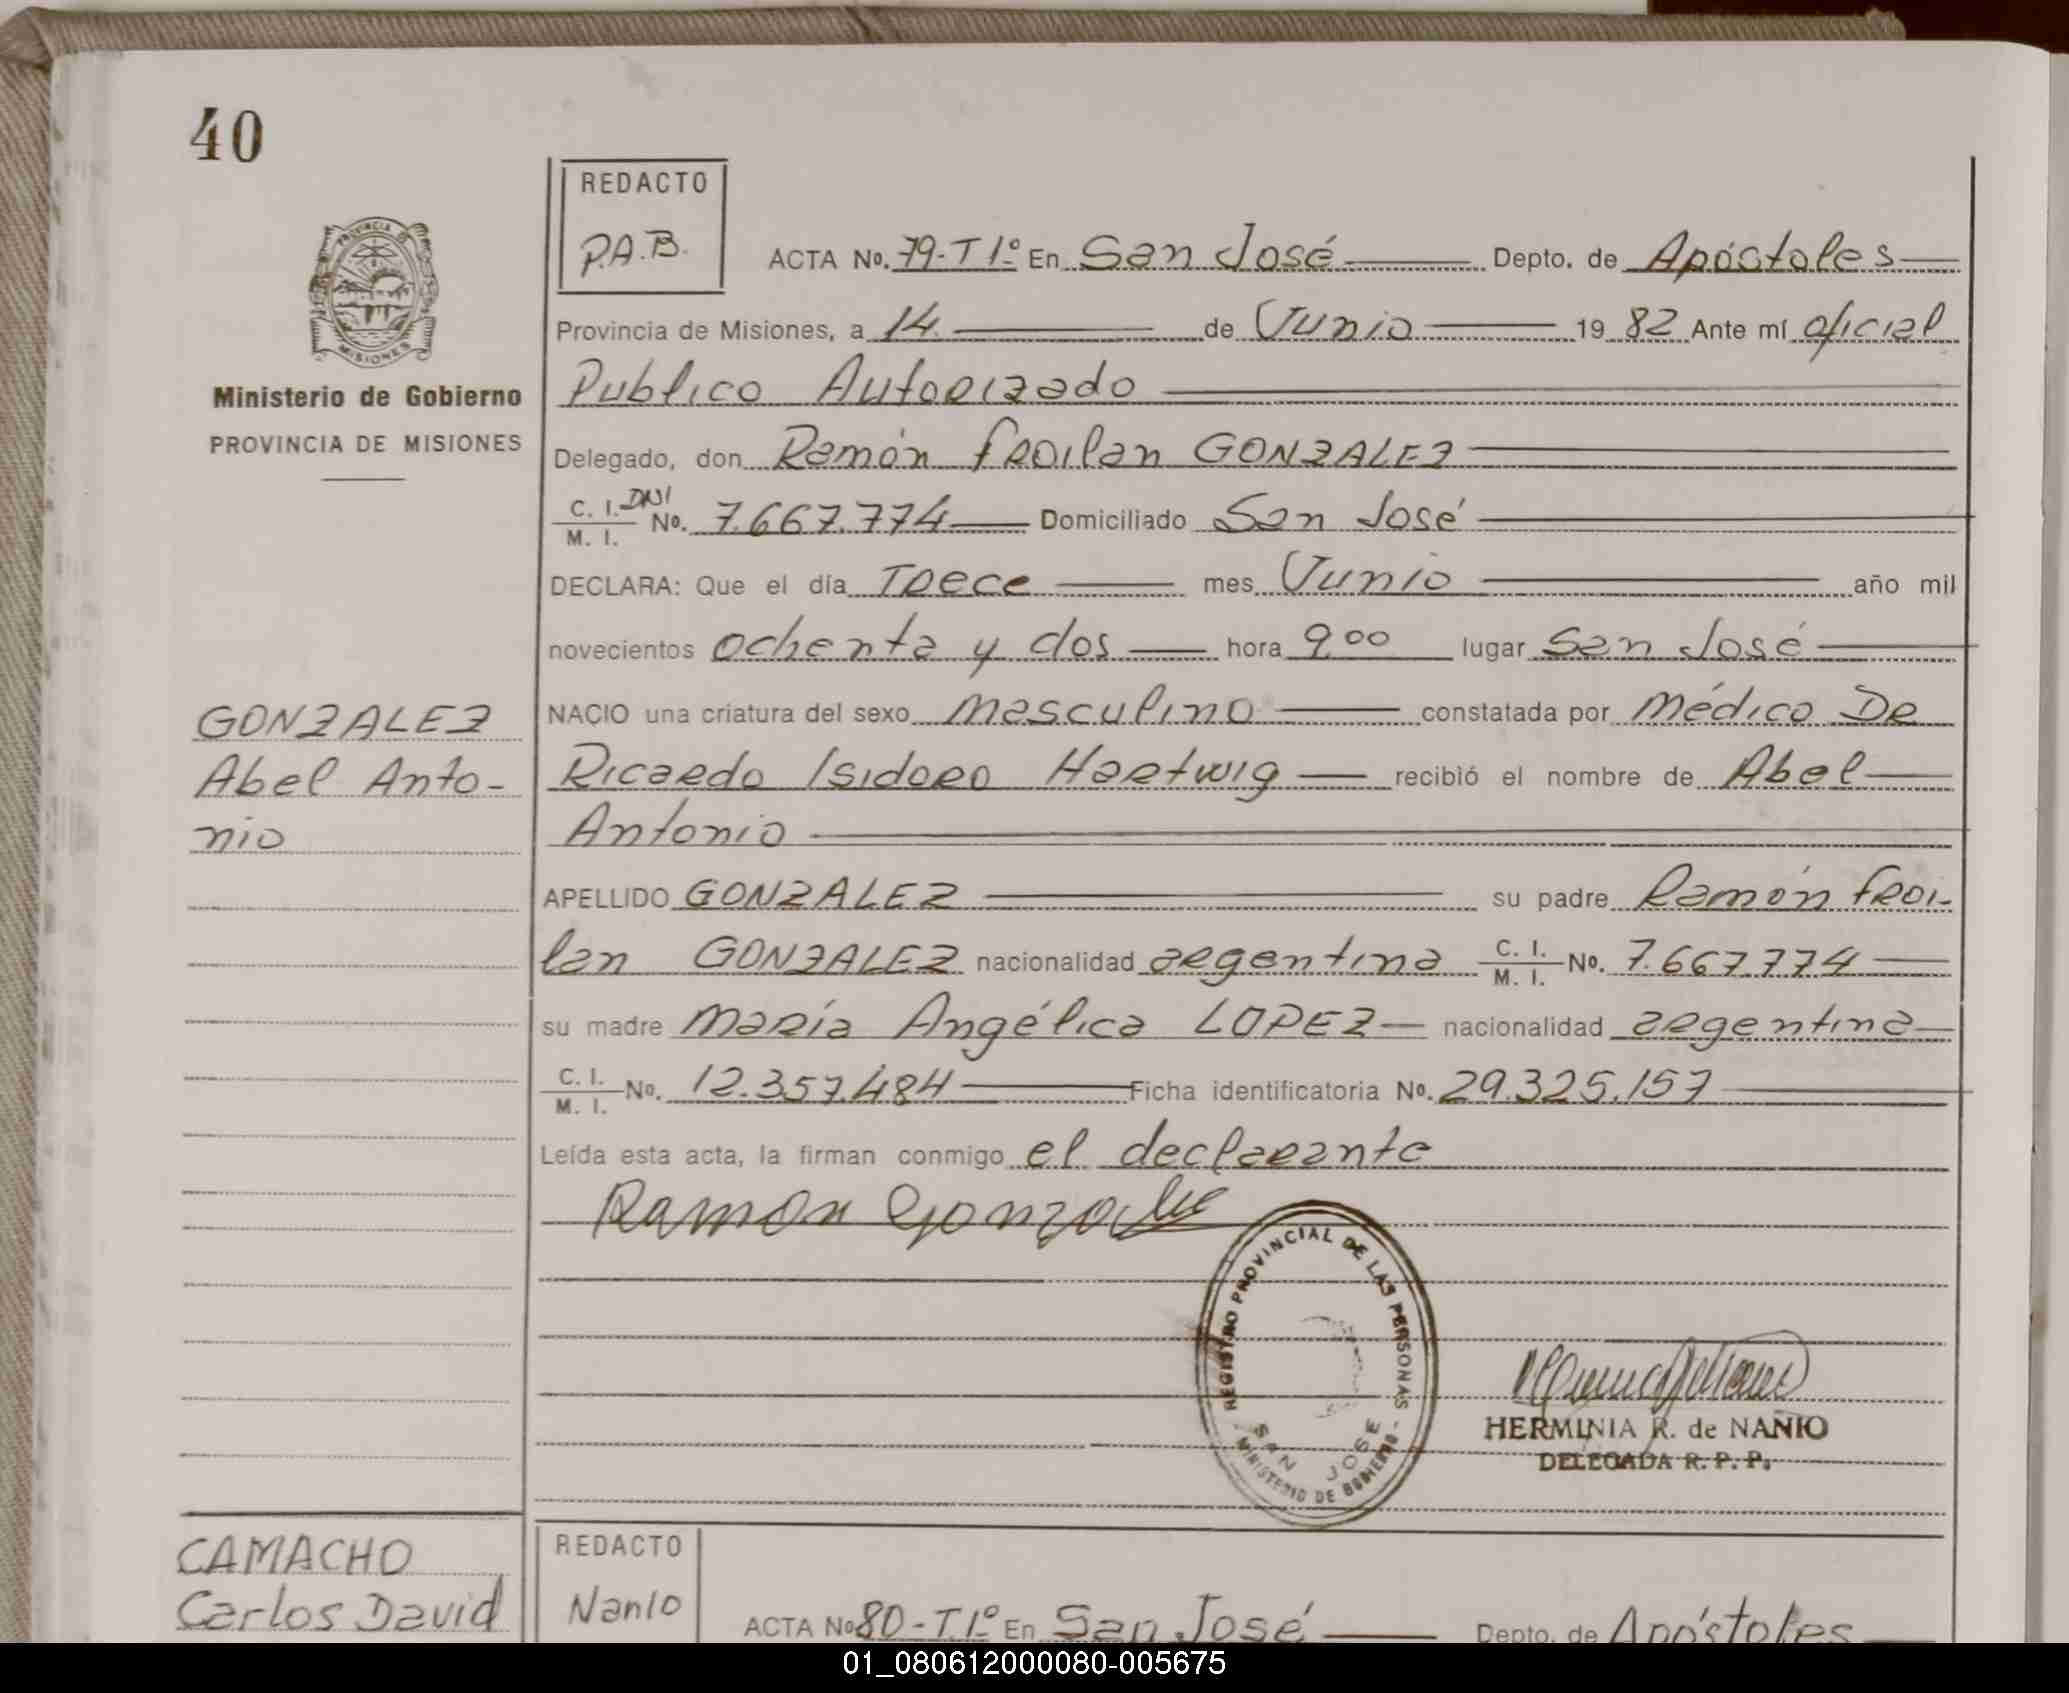 40
REDACTO
P.A.B.
PROVINCIA DE
MISIONES
ACTA No. 79-T1º En San José Depto. de Apóstoles
Provincia de Misiones, a 14 de Junio 19 82 Ante mí oficial
Publico Autorizado
Ministerio de Gobierno
PROVINCIA DE MISIONES
Delegado, don Ramón Froilan GONZALEZ
C. I. DNI
M. I. No. 7.667.774 Domiciliado San José
DECLARA: Que el día Trece mes Junio año mil
novecientos ochenta y dos hora 9,00 lugar San José
GONZALEZ
Abel Anto-
nio
NACIO una criatura del sexo masculino constatada por médico De
Ricardo Isidoro Hartwig recibió el nombre de Abel
Antonio
APELLIDO GONZALEZ su padre Ramón Froi-
lan GONZALEZ nacionalidad argentina C. I. M. I. No. 7.667.774
su madre María Angélica LOPEZ nacionalidad argentina
C. I. M. I. No. 12.357.484 Ficha identificatoria No. 29.325.157
Leída esta acta, la firman conmigo el declarante
Ramon Gonzalez
REGISTRO PROVINCIAL DE LAS PERSONAS
SAN JOSE
MINISTERIO DE GOBIERNO
HERMINIA R. de NANIO
DELEGADA R. P. P.
CAMACHO
Carlos David
REDACTO
Nanio
ACTA No 80-T.1º En San José Depto. de Apóstoles
01_080612000080-005675